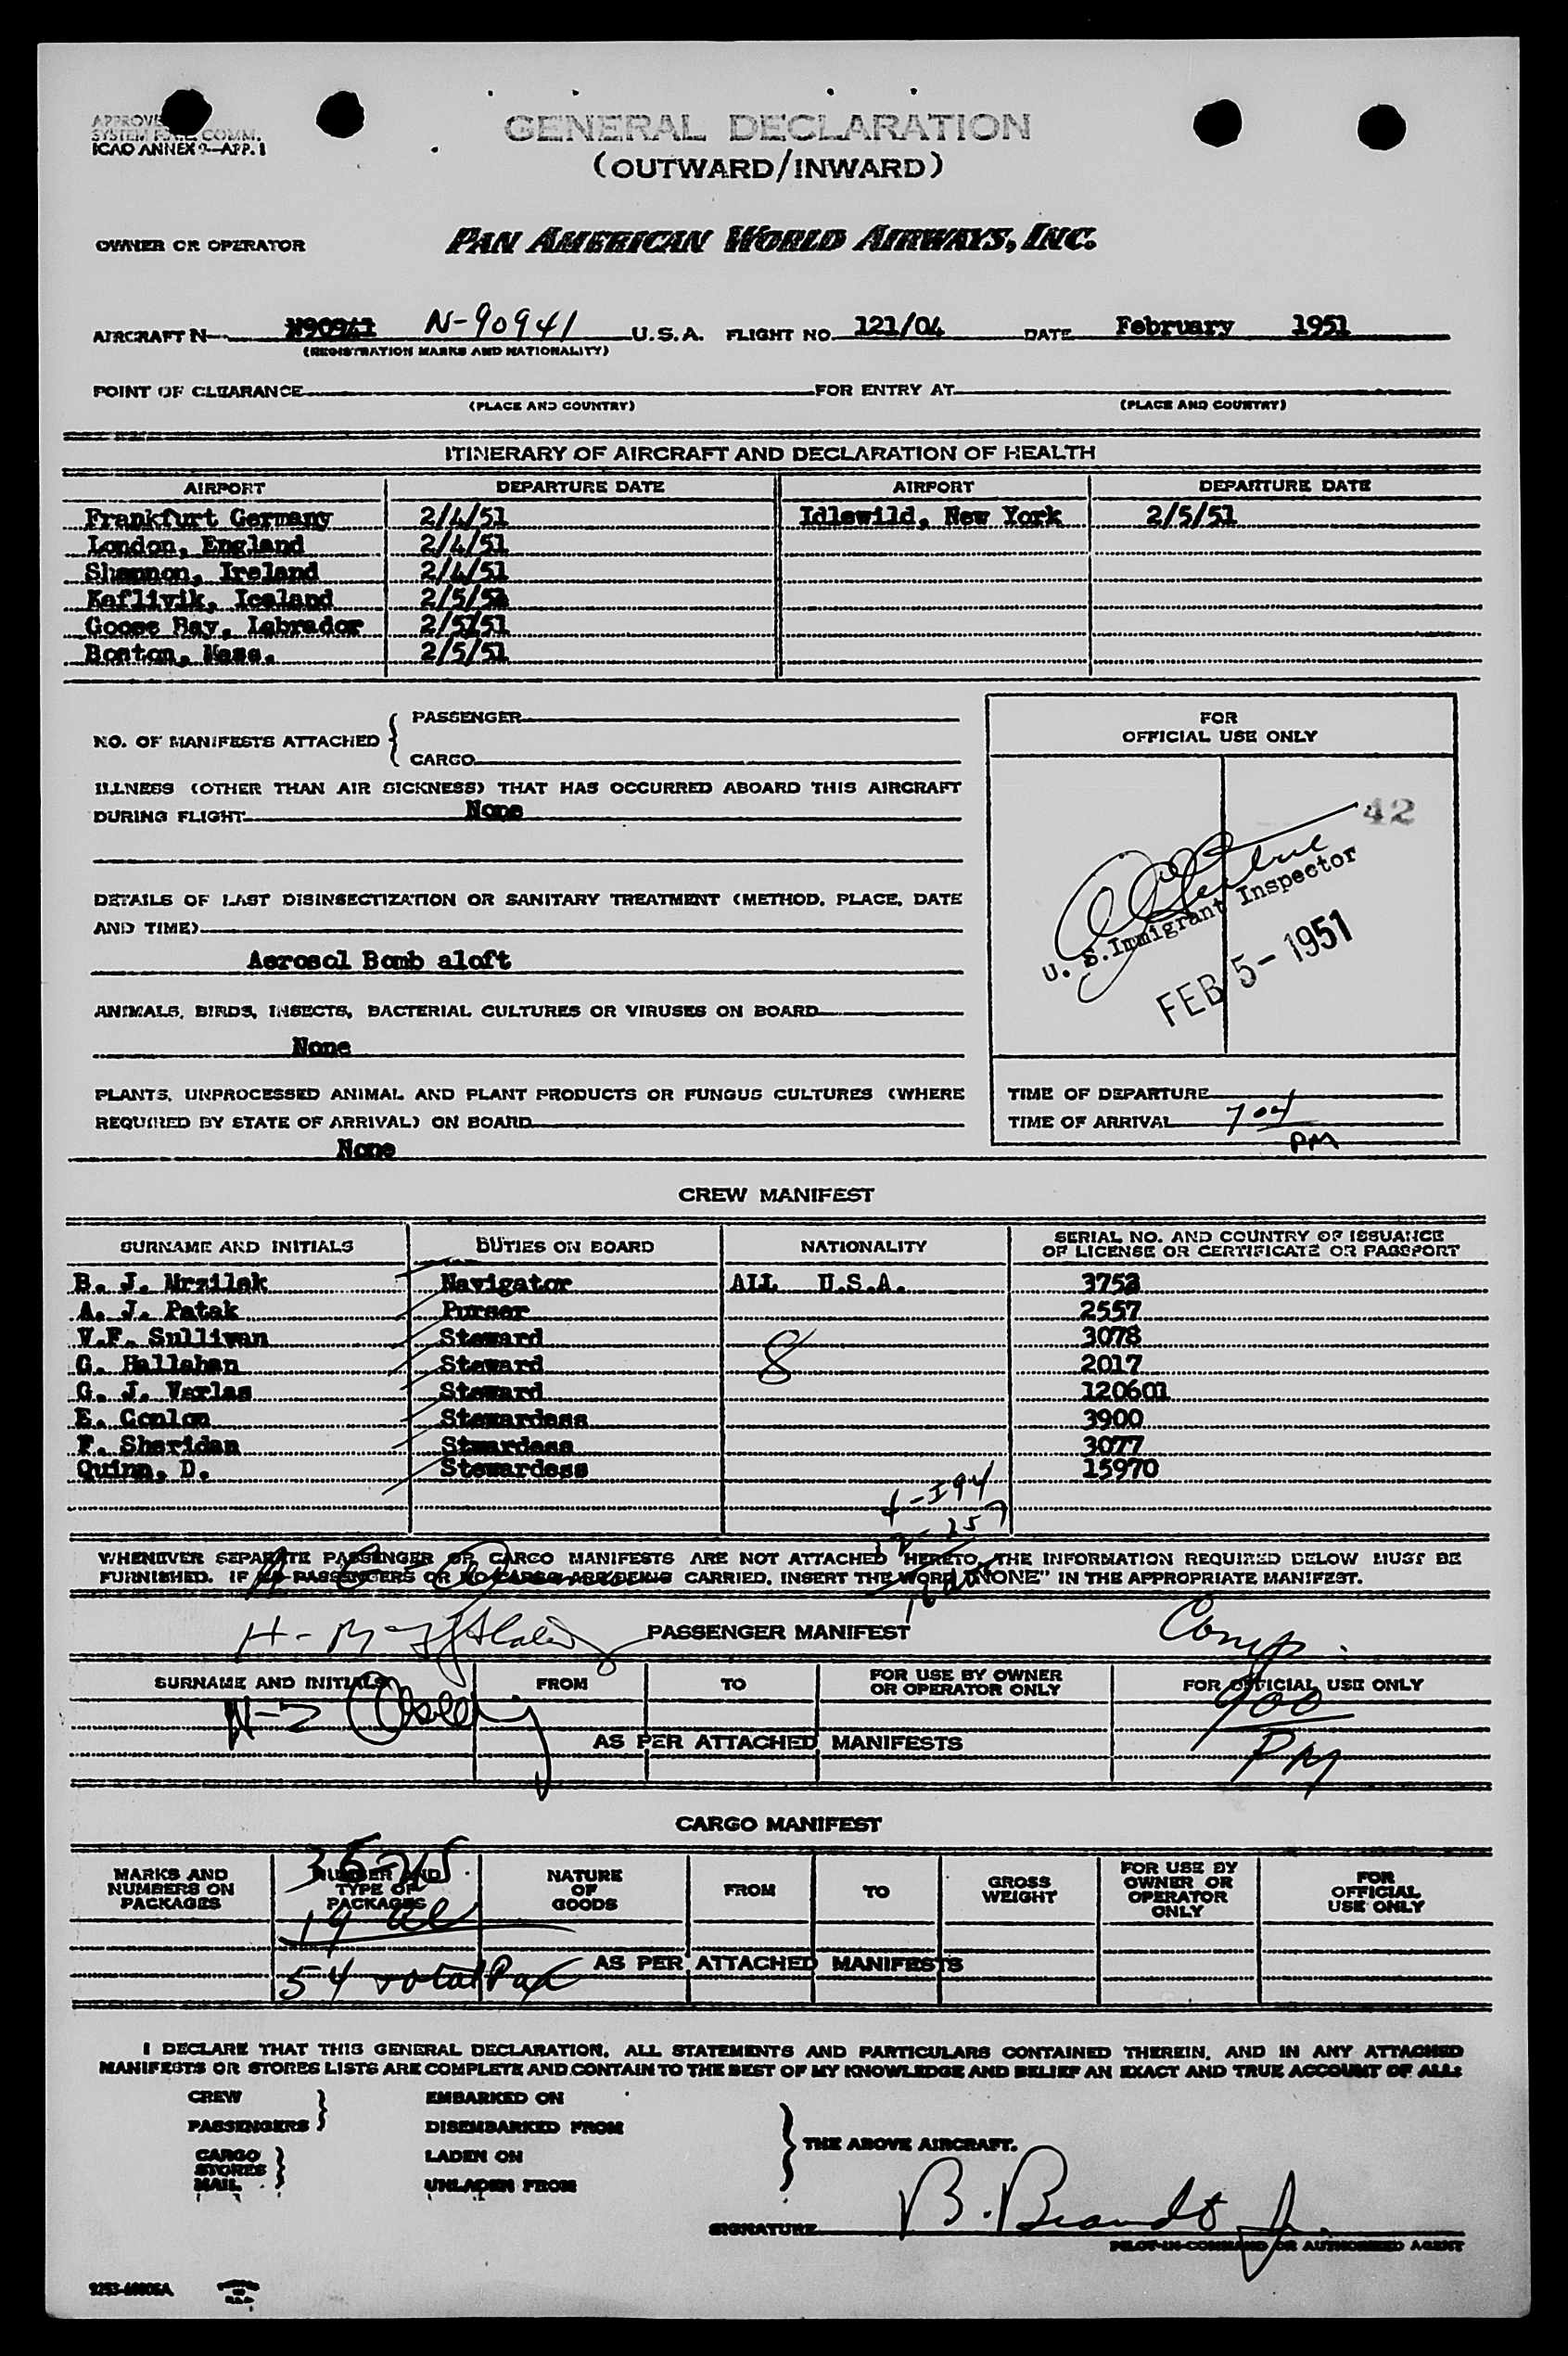 GENERAL DECLARATION
(OUTWARD/INWARD)
ICAO ANNEX 9—APP. 1
OWNER OR OPERATOR PAN AMERICAN WORLD AIRWAYS, INC.
AIRCRAFT N N90941 N-90941 U.S.A. FLIGHT NO. 121/04 DATE February 1951
(REGISTRATION MARKS AND NATIONALITY)
POINT OF CLEARANCE FOR ENTRY AT
(PLACE AND COUNTRY) (PLACE AND COUNTRY)
ITINERARY OF AIRCRAFT AND DECLARATION OF HEALTH
AIRPORT DEPARTURE DATE AIRPORT DEPARTURE DATE
Frankfurt Germany 2/4/51 Idlewild, New York 2/5/51
London, England 2/4/51
Shannon, Ireland 2/4/51
Keflivik, Iceland 2/5/51
Goose Bay, Labrador 2/5/51
Boston, Mass. 2/5/51
NO. OF MANIFESTS ATTACHED { PASSENGER
CARGO
ILLNESS (OTHER THAN AIR SICKNESS) THAT HAS OCCURRED ABOARD THIS AIRCRAFT
DURING FLIGHT None
DETAILS OF LAST DISINSECTIZATION OR SANITARY TREATMENT (METHOD, PLACE, DATE
AND TIME)
Aerosol Bomb aloft
ANIMALS, BIRDS, INSECTS, BACTERIAL CULTURES OR VIRUSES ON BOARD
None
PLANTS, UNPROCESSED ANIMAL AND PLANT PRODUCTS OR FUNGUS CULTURES (WHERE
REQUIRED BY STATE OF ARRIVAL) ON BOARD
None
FOR
OFFICIAL USE ONLY
42
U. S. Immigrant Inspector
FEB 5-1951
TIME OF DEPARTURE
TIME OF ARRIVAL 704
PM
CREW MANIFEST
SURNAME AND INITIALS DUTIES ON BOARD NATIONALITY SERIAL NO. AND COUNTRY OF ISSUANCE
OF LICENSE OR CERTIFICATE OR PASSPORT
B. J. Mrzilak Navigator ALL U.S.A. 3752
A. J. Patak Purser 2557
V.F. Sullivan Steward 3078
G. Hallahan Steward 8 2017
G. J. Varlas Steward 120601
E. Conlon Stewardess 3900
F. Sheridan Stwardess 3077
Quinn, D. Stewardess 15970
4-I94
2-257
WHENEVER SEPARATE PASSENGER OR CARGO MANIFESTS ARE NOT ATTACHED HERETO, THE INFORMATION REQUIRED BELOW MUST BE
FURNISHED. IF NO PASSENGERS OR NO CARGO ARE BEING CARRIED, INSERT THE WORD "NONE" IN THE APPROPRIATE MANIFEST.
PASSENGER MANIFEST
Comp.
SURNAME AND INITIALS FROM TO FOR USE BY OWNER
OR OPERATOR ONLY FOR OFFICIAL USE ONLY
900
PM
AS PER ATTACHED MANIFESTS
CARGO MANIFEST
35 - US.
MARKS AND
NUMBERS ON
PACKAGES NUMBER AND
TYPE OF
PACKAGES NATURE
OF
GOODS FROM TO GROSS
WEIGHT FOR USE BY
OWNER OR
OPERATOR
ONLY FOR
OFFICIAL
USE ONLY
19 al
54 total Pax AS PER ATTACHED MANIFESTS
I DECLARE THAT THIS GENERAL DECLARATION, ALL STATEMENTS AND PARTICULARS CONTAINED THEREIN, AND IN ANY ATTACHED
MANIFESTS OR STORES LISTS ARE COMPLETE AND CONTAIN TO THE BEST OF MY KNOWLEDGE AND BELIEF AN EXACT AND TRUE ACCOUNT OF ALL:
CREW EMBARKED ON
PASSENGERS DISEMBARKED FROM
THE ABOVE AIRCRAFT.
CARGO LADEN ON
STORES
MAIL UNLADEN FROM
SIGNATURE B. Brandt Jr.
PILOT-IN-COMMAND OR AUTHORIZED AGENT